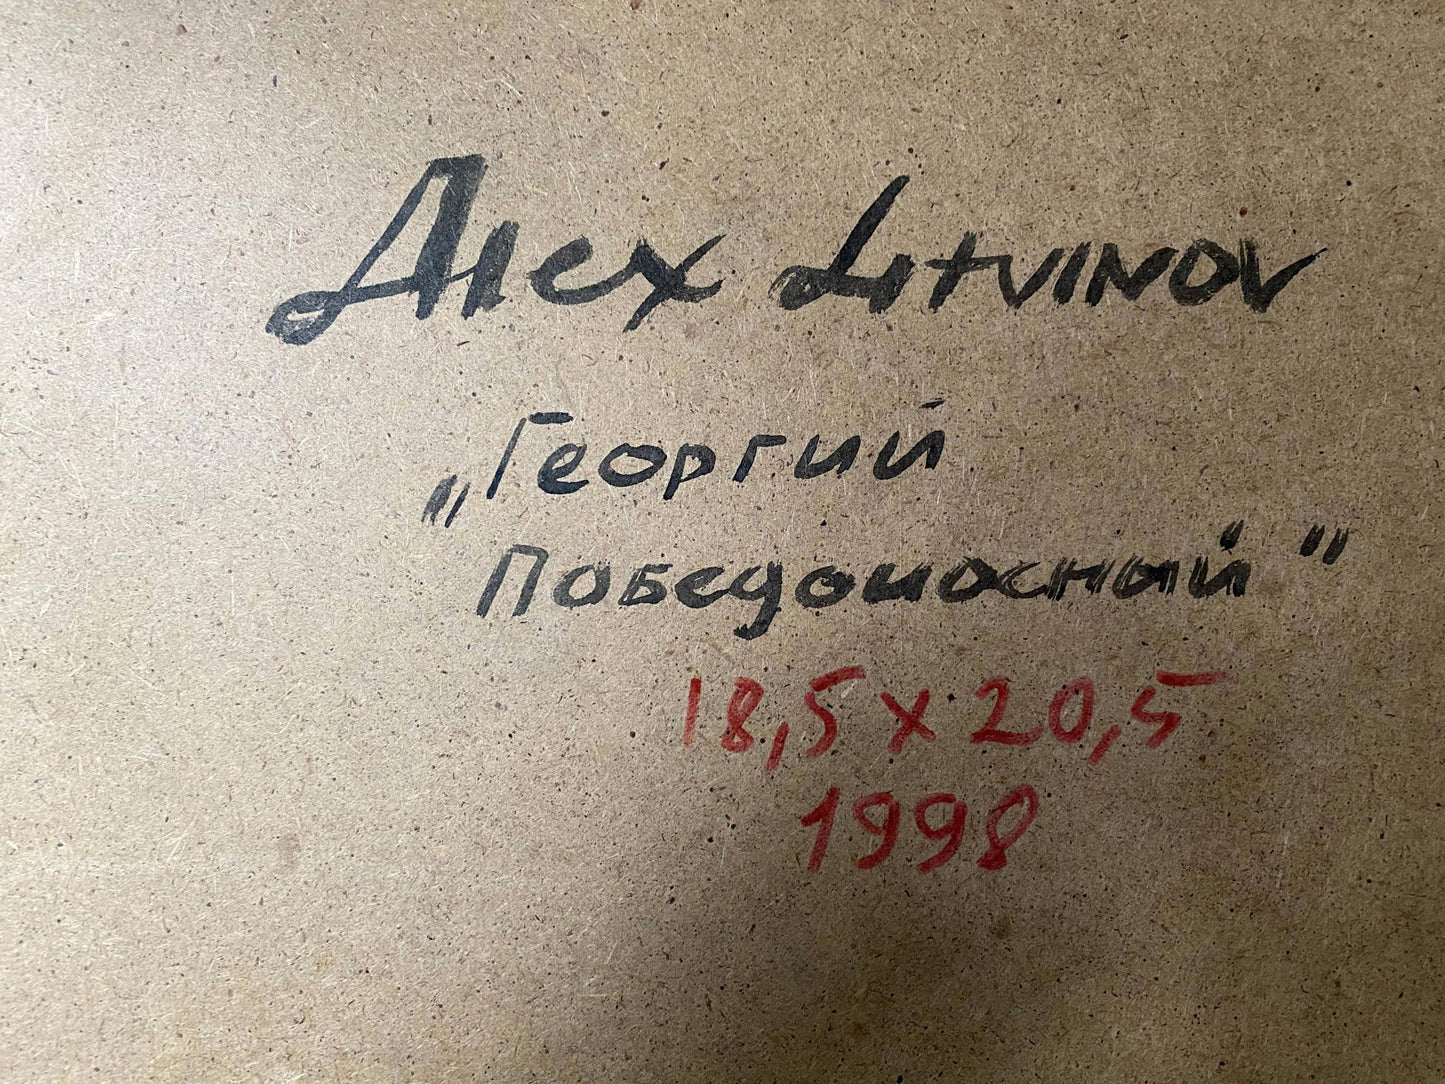 Alex Litvinov
„Георгий
Победоносный"
18,5 x 20,5
1998